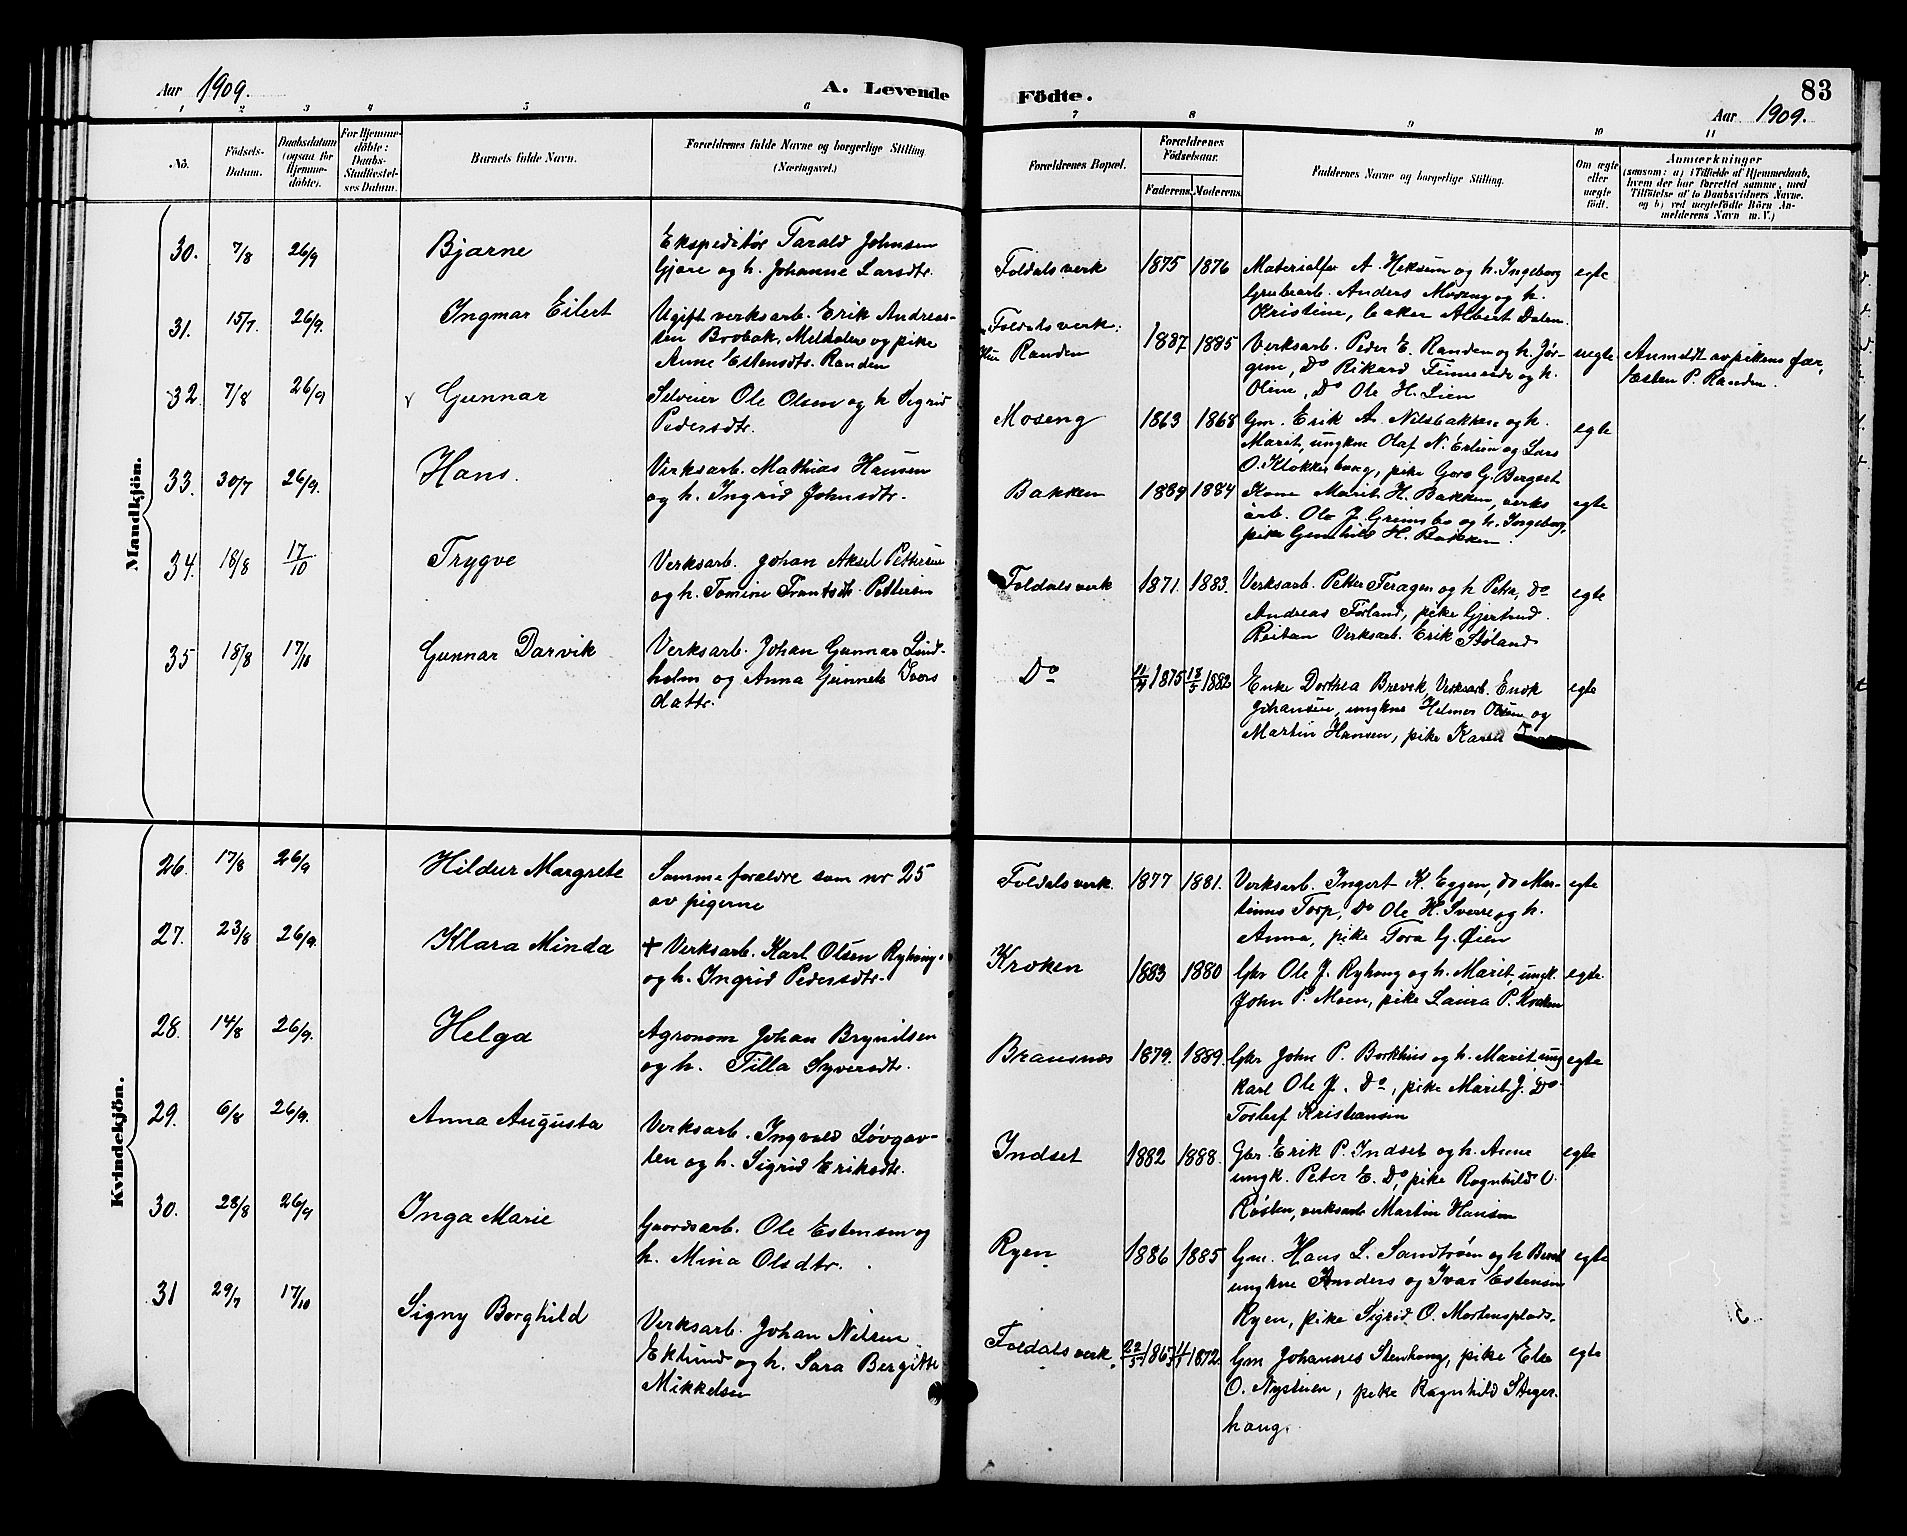 83
Aar 1909. A. Levende Födte. Aar 1909.
1 2 3 4 5 6 7 8 9 10 11
No. Födsels-Datum. Daabsdatum (ogsaa for Hjemmedöbte). For Hjemmedöbte: Daabs-Stadfæstelses Datum. Barnets fulde Navn. Forældrenes fulde Navne og borgerlige Stilling (Næringsvei.) Forældrenes Bopæl. Forældrenes Födselsaar. Faderens. Moderens. Faddernes Navne og borgerlige Stilling. Om ægte eller uægte födt. Anmærkninger (saasom: a) i Tilfælde af Hjemmedaab, hvem der har forrettet samme, med Tilföielse af to Daabsvidners Navne, og b) ved uægtefödte Börn Anmelderens Navn m. V.)
Mandkjön.
30. 7/8 26/9 Bjarne
Ekspeditør Tarald Johnsen
Gjøre og h. Johanne Larsdtr.
Foldals verk 1875 1876
Materialfor A. Heksem og h. Ingeborg
Grubearb. Anders Moseng og h.
Kristine, baker Albert Dalen
egte
31. 15/7. 26/9. Ingmar Eilert
Ugift verksarb. Erik Andreas-
sen Brobak, Meldalen og pike
Anne Estensdtr. Randen
Foldals verk.
Randen 1887 1885
Verksarb. Peder E. Randen og h. Jør-
gine, Do Rikard og h.
Oline, Do Ole H. Lien
uegte
Anmeldt av pikens far,
Esten P. Randen.
32. 7/8 26/9 Gunnar
Selveier Ole Olsen og h Sigrid
Pedersdtr.
Moseng 1863 1868
Gm. Erik A. Nilsbakken og h.
Marit, ungkne Olaf N. Erlien og Lars
O. Klokkerhaug, pike Goro G. Bergset
egte
33. 30/7 26/9. Hans.
Verksarb. Mathias Hansen
og h. Ingrid Johnsdtr.
Bakken 1889 1884
Kone Marit H. Bakken, verks
arb. Ole J. Grimsbo og h. Ingeborg,
pike Gunhild H. Bakken.
egte
34. 18/8 17/10 Trygve
Verksarb. Johan Aksel Pettersen
og h. Tomine Frantsdtr. Pettersen
Foldals verk 1871. 1883.
Verksarb. Peter Feragen og h Petra, do
Andreas Førland, pike Gjertrud
Reitan Verksarb. Erik Støland
egte
35 18/8 17/10 Gunnar Darvik
Verksarb. Johan Gunnar Lind-
holm og Anna Gunnele Ivers
datter.
Do 1875 18/5 1882
Enke Dorthea Brevik, Verksarb. Enok
Johansen, ungkne Helmer Olsen og
Martin Hansen, pike Karen
egte
Kvindekjön.
26. 17/8 26/9 Hildur Margrete
Samme forældre som nr 25
av pigerne
Foldals verk. 1877 1881.
Verksarb. Ingert K. Eggen, do Mar-
tinus Torp, Do Ole H. Sverre og h.
Anna, pike Tora G. Øien
egte
27. 23/8 26/9. Klara Minda
+ Verksarb. Karl Olsen Ryhaug
og h. Ingrid Pedersdtr.
Kroken 1883 1880
Gbr Ole J. Ryhaug og h. Marit, ungk.
John P. Moen, pike Laura P. Kroken
egte.
28. 14/8 26/9. Helga
Agronom Johan Brynilsen
og h. Tilla Syversdtr.
Bransnes 1879. 1889.
Gbr John P. Borkhus og h. Marit, ung
karl Ole J. Do, pike Marit J. Do
Tosten Kristiansen
egte
29. 6/8 26/9. Anna Augusta
Verksarb. Ingvald Løvgav-
len og h. Sigrid Eriksdtr.
Indset 1882 1888.
Gbr. Erik P. Indset og h. Anne
ungk. Peter E. Do, pike Ragnhild O.
Røsten, verksarb Martin Hansen
egte
30. 28/8 26/9 Inga Marie
Gaardsarb. Ole Estensen og
h. Mina Olsdtr.
Ryen 1886 1885
Gm. Hans L. Sandtrøen og h Berit
ungkne Anders og Ivar Estensen
Ryen, pike Sigrid O. Mortensplads.
egte
31 29/7 17/10 Signy Borghild
Verksarb. Johan Nilsen
Eklund og h. Sara Bergitte
Mikkelsen
Foldals verk. 22/5 1867 1872.
Gm Johannes Stenhaug, pike Else
O. Nysteien, pike Ragnhild Steger-
haug.
egte